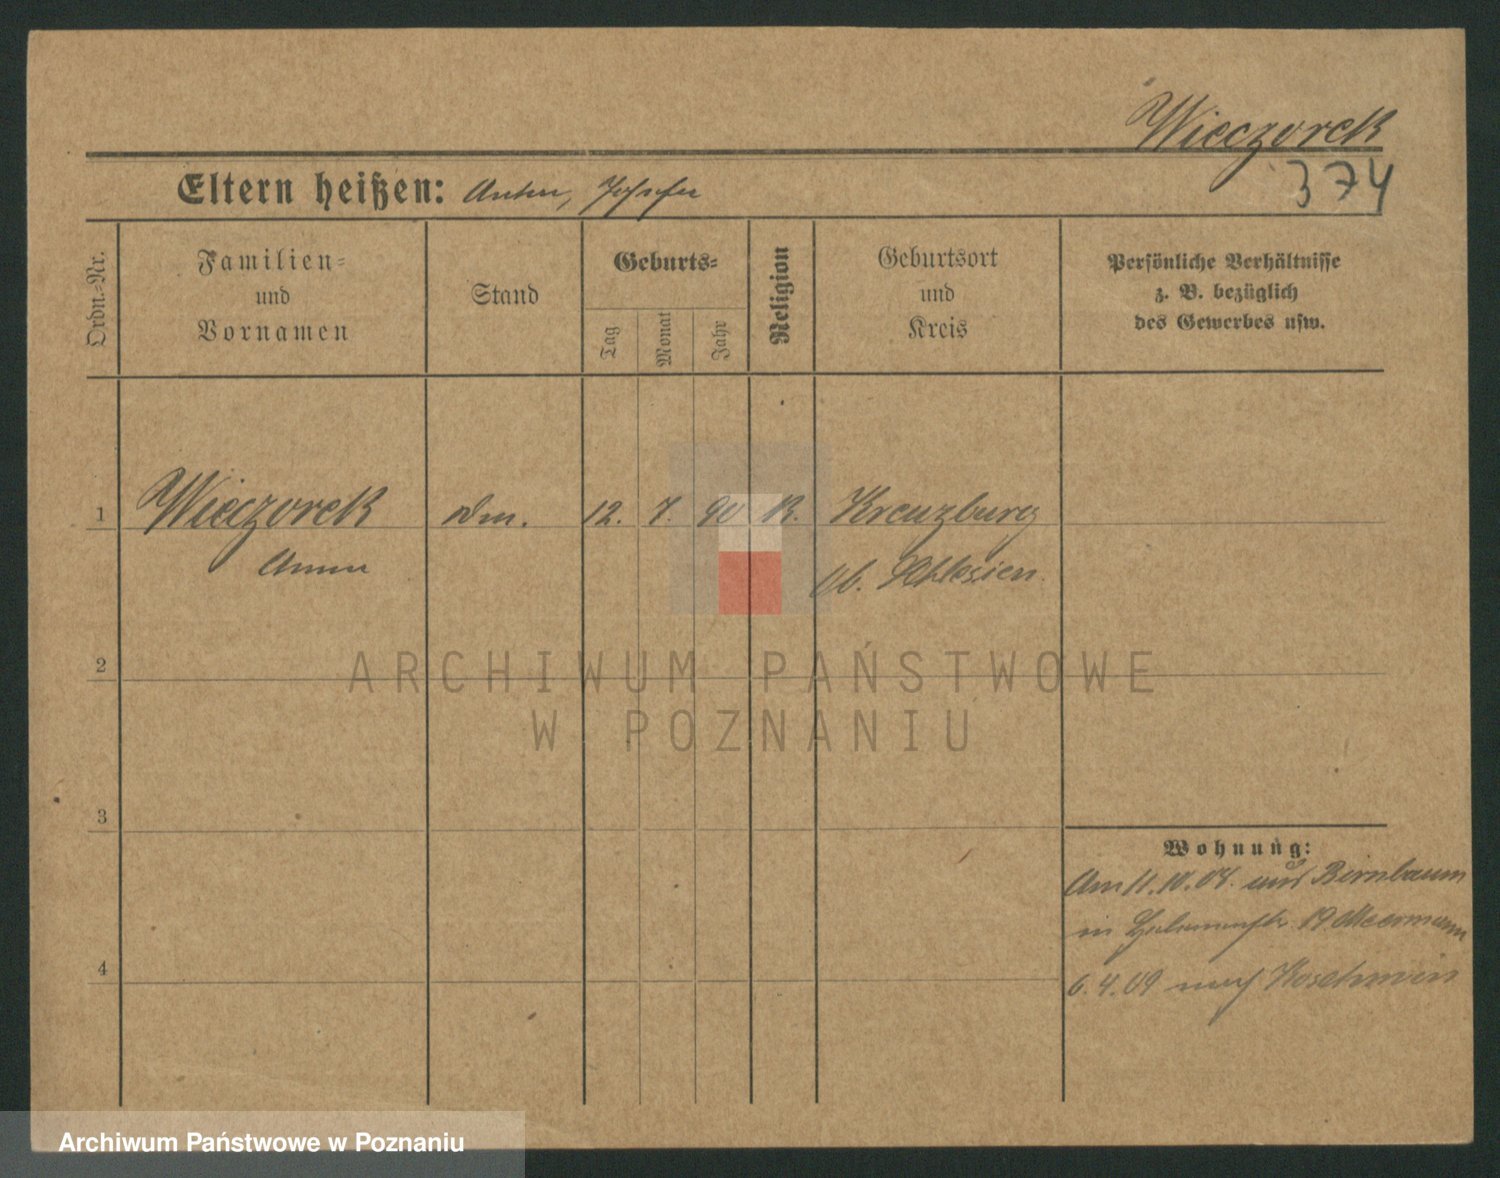 Wieczorek
374
Eltern heißen: Anton, Josefa
Ordn.-Nr.
Familien-
und
Vornamen
Stand
Geburts-
Tag
Monat
Jahr
Religion
Geburtsort
und
Kreis
Persönliche Verhältnisse
z. B. bezüglich
des Gewerbes usw.
1 Wieczorek 12. 7. 90 K. Kreuzburg
Anna Ob. Schlesien.
2
3
4
Wohnung:
Am 11.10.08. aus Birnbaum
in 19 Meermann
6.4.09 nach Koschmin
ARCHIWUM PAŃSTWOWE
W POZNANIU
Archiwum Państwowe w Poznaniu